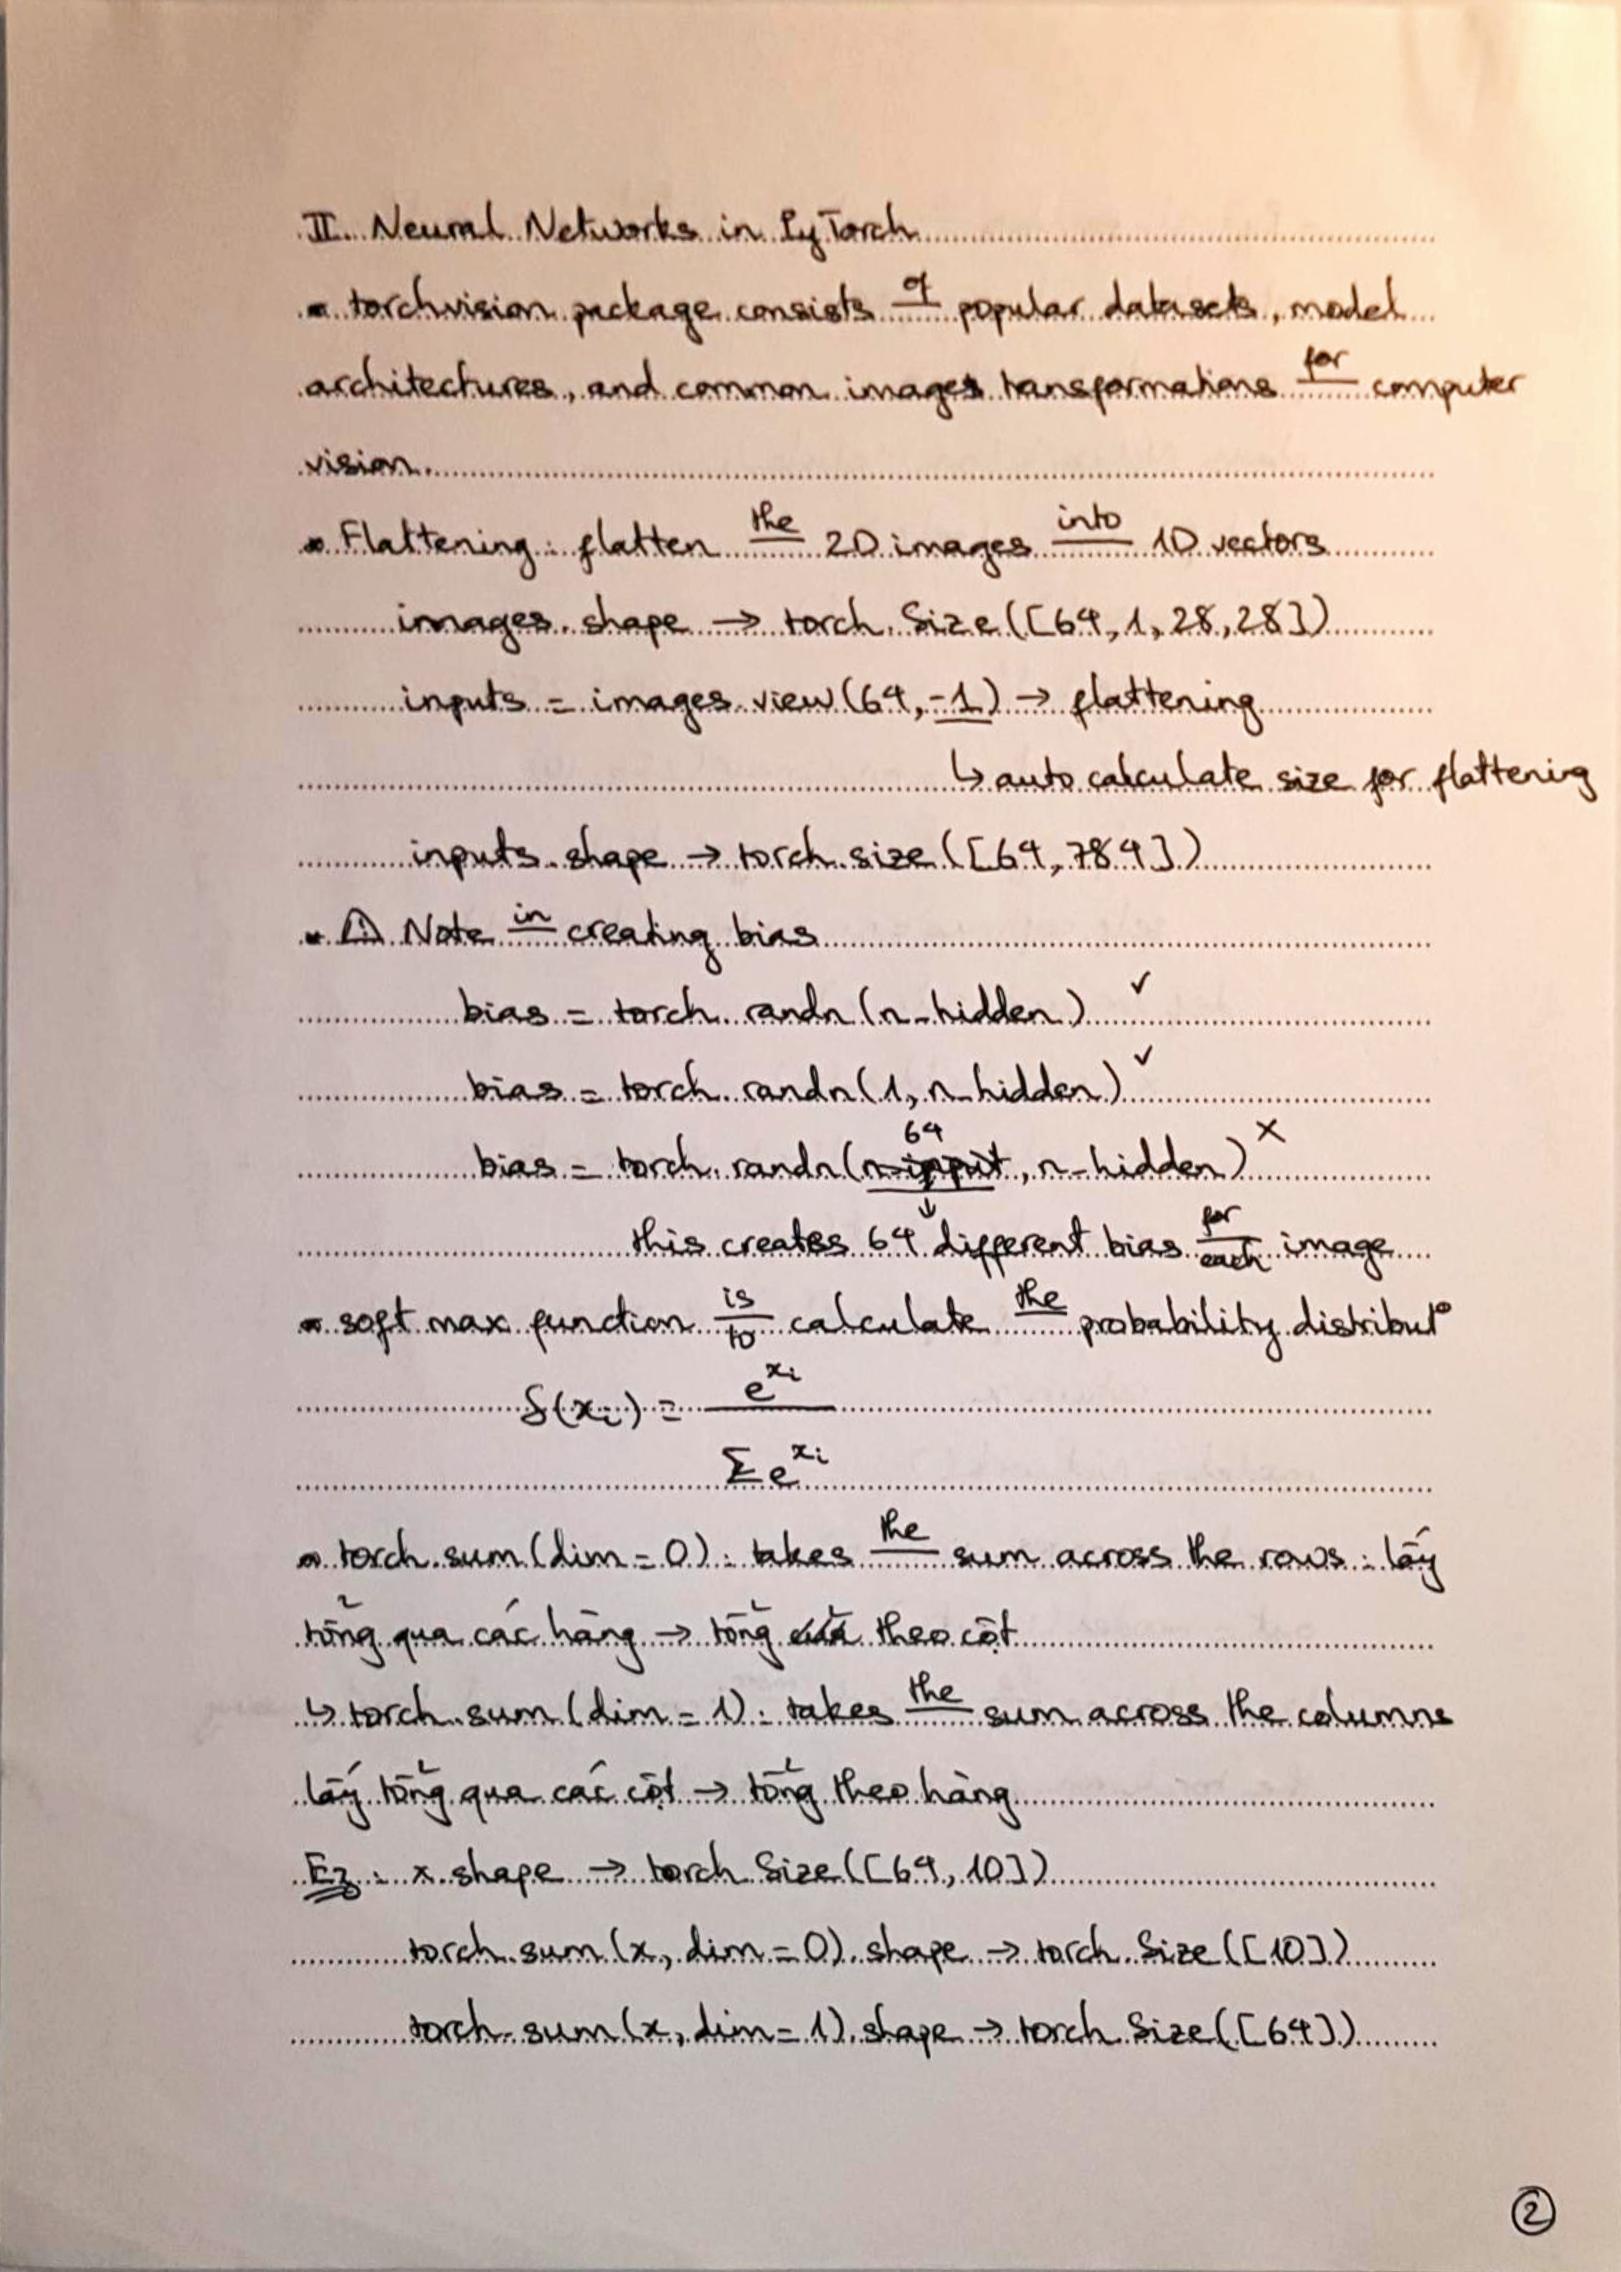 II. Neural Networks in PyTorch
torchvision package consists of popular datasets, model
architectures, and common images transformations for computer
vision.
Flattening: flatten the 2D images into 1D vectors
images.shape → torch.Size([64,1,28,28])
inputs = images.view(64,-1) → flattening
↳ auto calculate size for flattening
inputs.shape → torch.size([64,784])
⚠ Note in creating bias
bias = torch.randn(n_hidden) ✓
bias = torch.randn(1, n_hidden) ✓
64
bias = torch.randn(n-input, n_hidden) X
↓
this creates 64 different bias for each image
soft max function is to calculate the probability distribut°
S(xi) = e^xi
Σe^xi
torch.sum(dim=0): takes the sum across the rows: lấy
tổng qua các hàng → tổng theo cột
↳ torch.sum(dim=1): takes the sum across the columns
lấy tổng qua các cột → tổng theo hàng
Ez: x.shape → torch.Size([64,10])
torch.sum(x, dim=0).shape → torch.Size([10])
torch.sum(x, dim=1).shape → torch.Size([64])
2